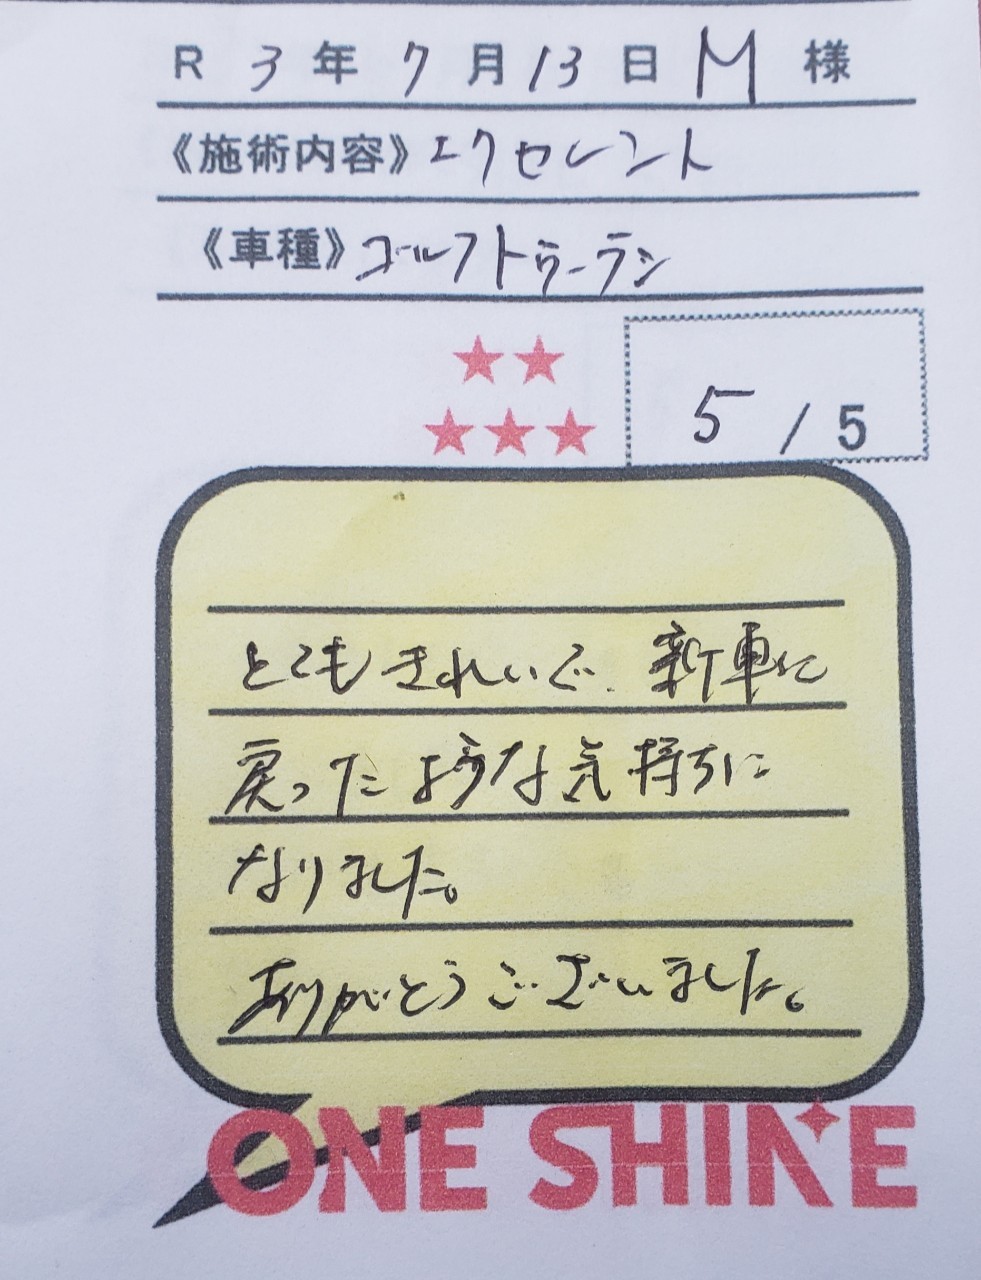 R 3年 7月 13日 M 様
《施術内容》エクセレント
《車種》ゴルフトゥーラン
★★
★★★
5 / 5
とてもきれいで、新車に
戻ったような気持ちに
なりました。
ありがとうございました。
ONE SHINE